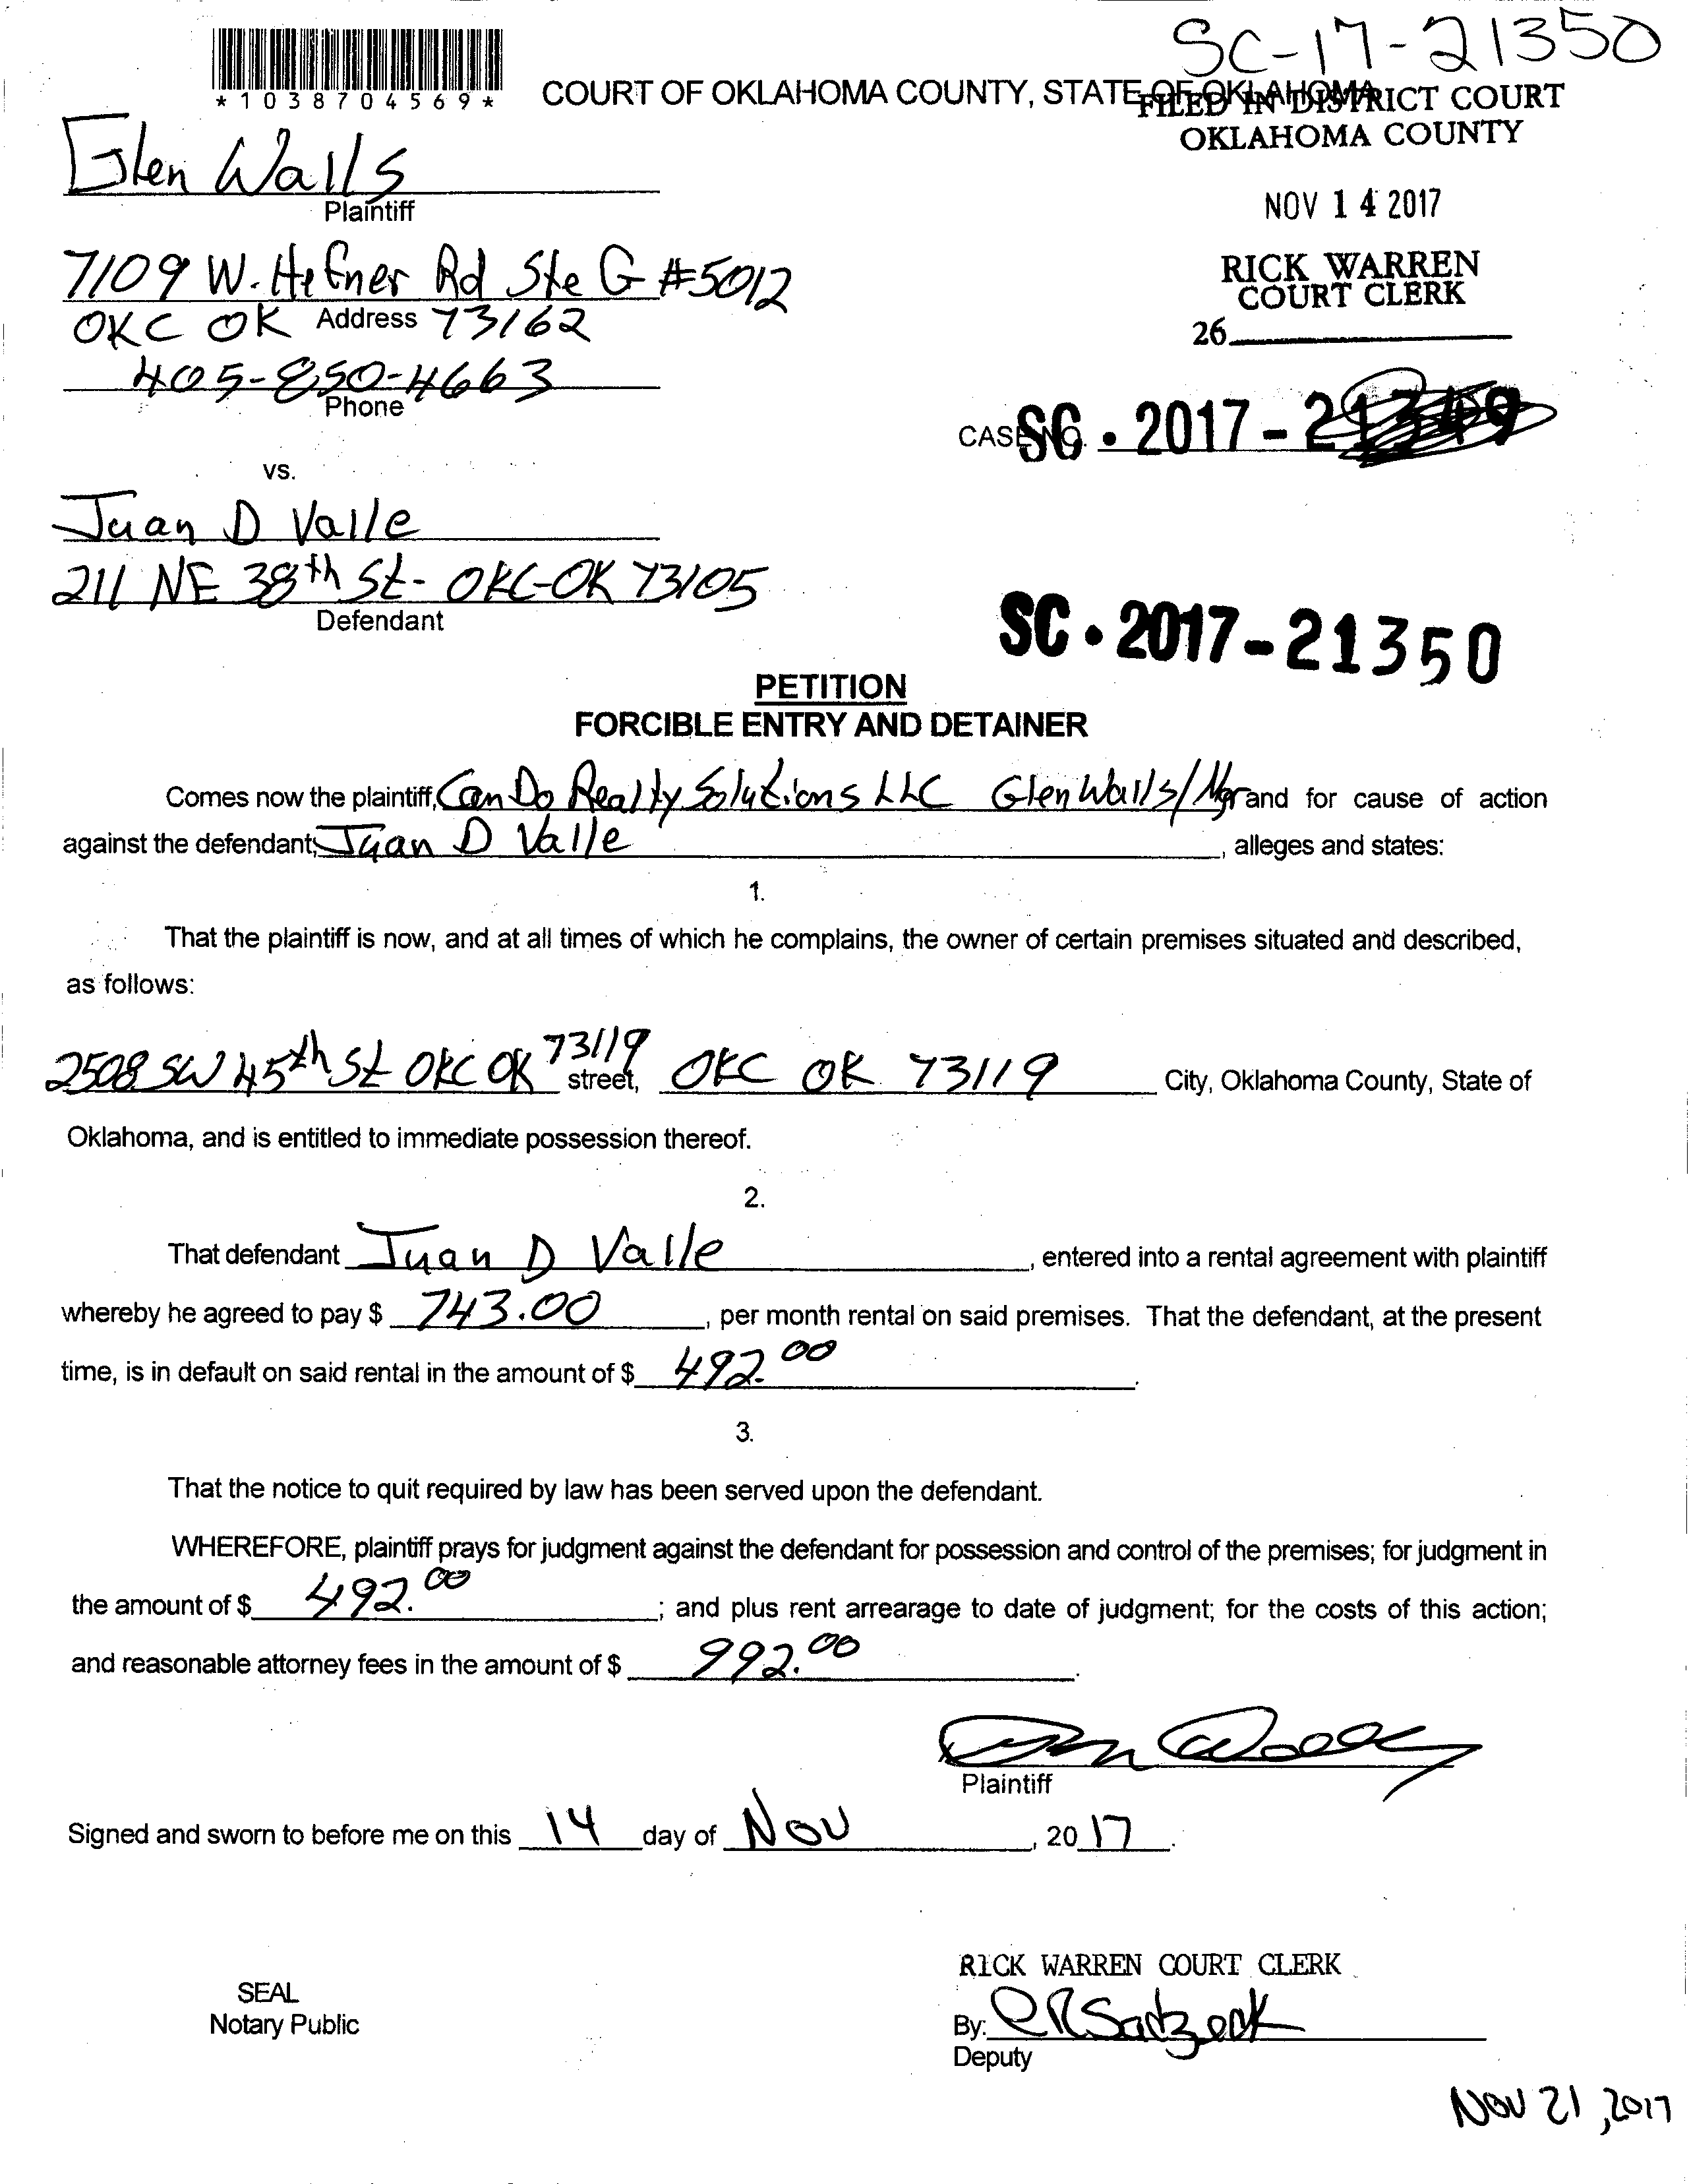 SC-17-21350
*1038704569*
COURT OF OKLAHOMA COUNTY, STATE OF OKLAHOMA
FILED IN DISTRICT COURT
OKLAHOMA COUNTY
Glen Walls
Plaintiff
NOV 14 2017
7109 W. Hefner Rd Ste G #5012
RICK WARREN
COURT CLERK
OKC OK Address 73162
26
405-850-4663
Phone
CASE NO. SC • 2017 - 21349
vs.
Juan D Valle
211 NE 38th St - OKC-OK 73105
Defendant
SC • 2017-21350
PETITION
FORCIBLE ENTRY AND DETAINER
Comes now the plaintiff, Can Do Realty Solutions LLC Glen Walls/Mgr and for cause of action
against the defendant, Juan D Valle, alleges and states:
1.
That the plaintiff is now, and at all times of which he complains, the owner of certain premises situated and described,
as follows:
2508 SW 45th St OKC OK 73119 street, OKC OK 73119 City, Oklahoma County, State of
Oklahoma, and is entitled to immediate possession thereof.
2.
That defendant Juan D Valle, entered into a rental agreement with plaintiff
whereby he agreed to pay $ 743.00, per month rental on said premises. That the defendant, at the present
time, is in default on said rental in the amount of $ 492.00.
3.
That the notice to quit required by law has been served upon the defendant.
WHEREFORE, plaintiff prays for judgment against the defendant for possession and control of the premises; for judgment in
the amount of $ 492.00; and plus rent arrearage to date of judgment; for the costs of this action;
and reasonable attorney fees in the amount of $ 992.00.
Plaintiff
Signed and sworn to before me on this 14 day of Nov, 2017.
RICK WARREN COURT CLERK
SEAL
Notary Public
By:
Deputy
NOV 21, 2017